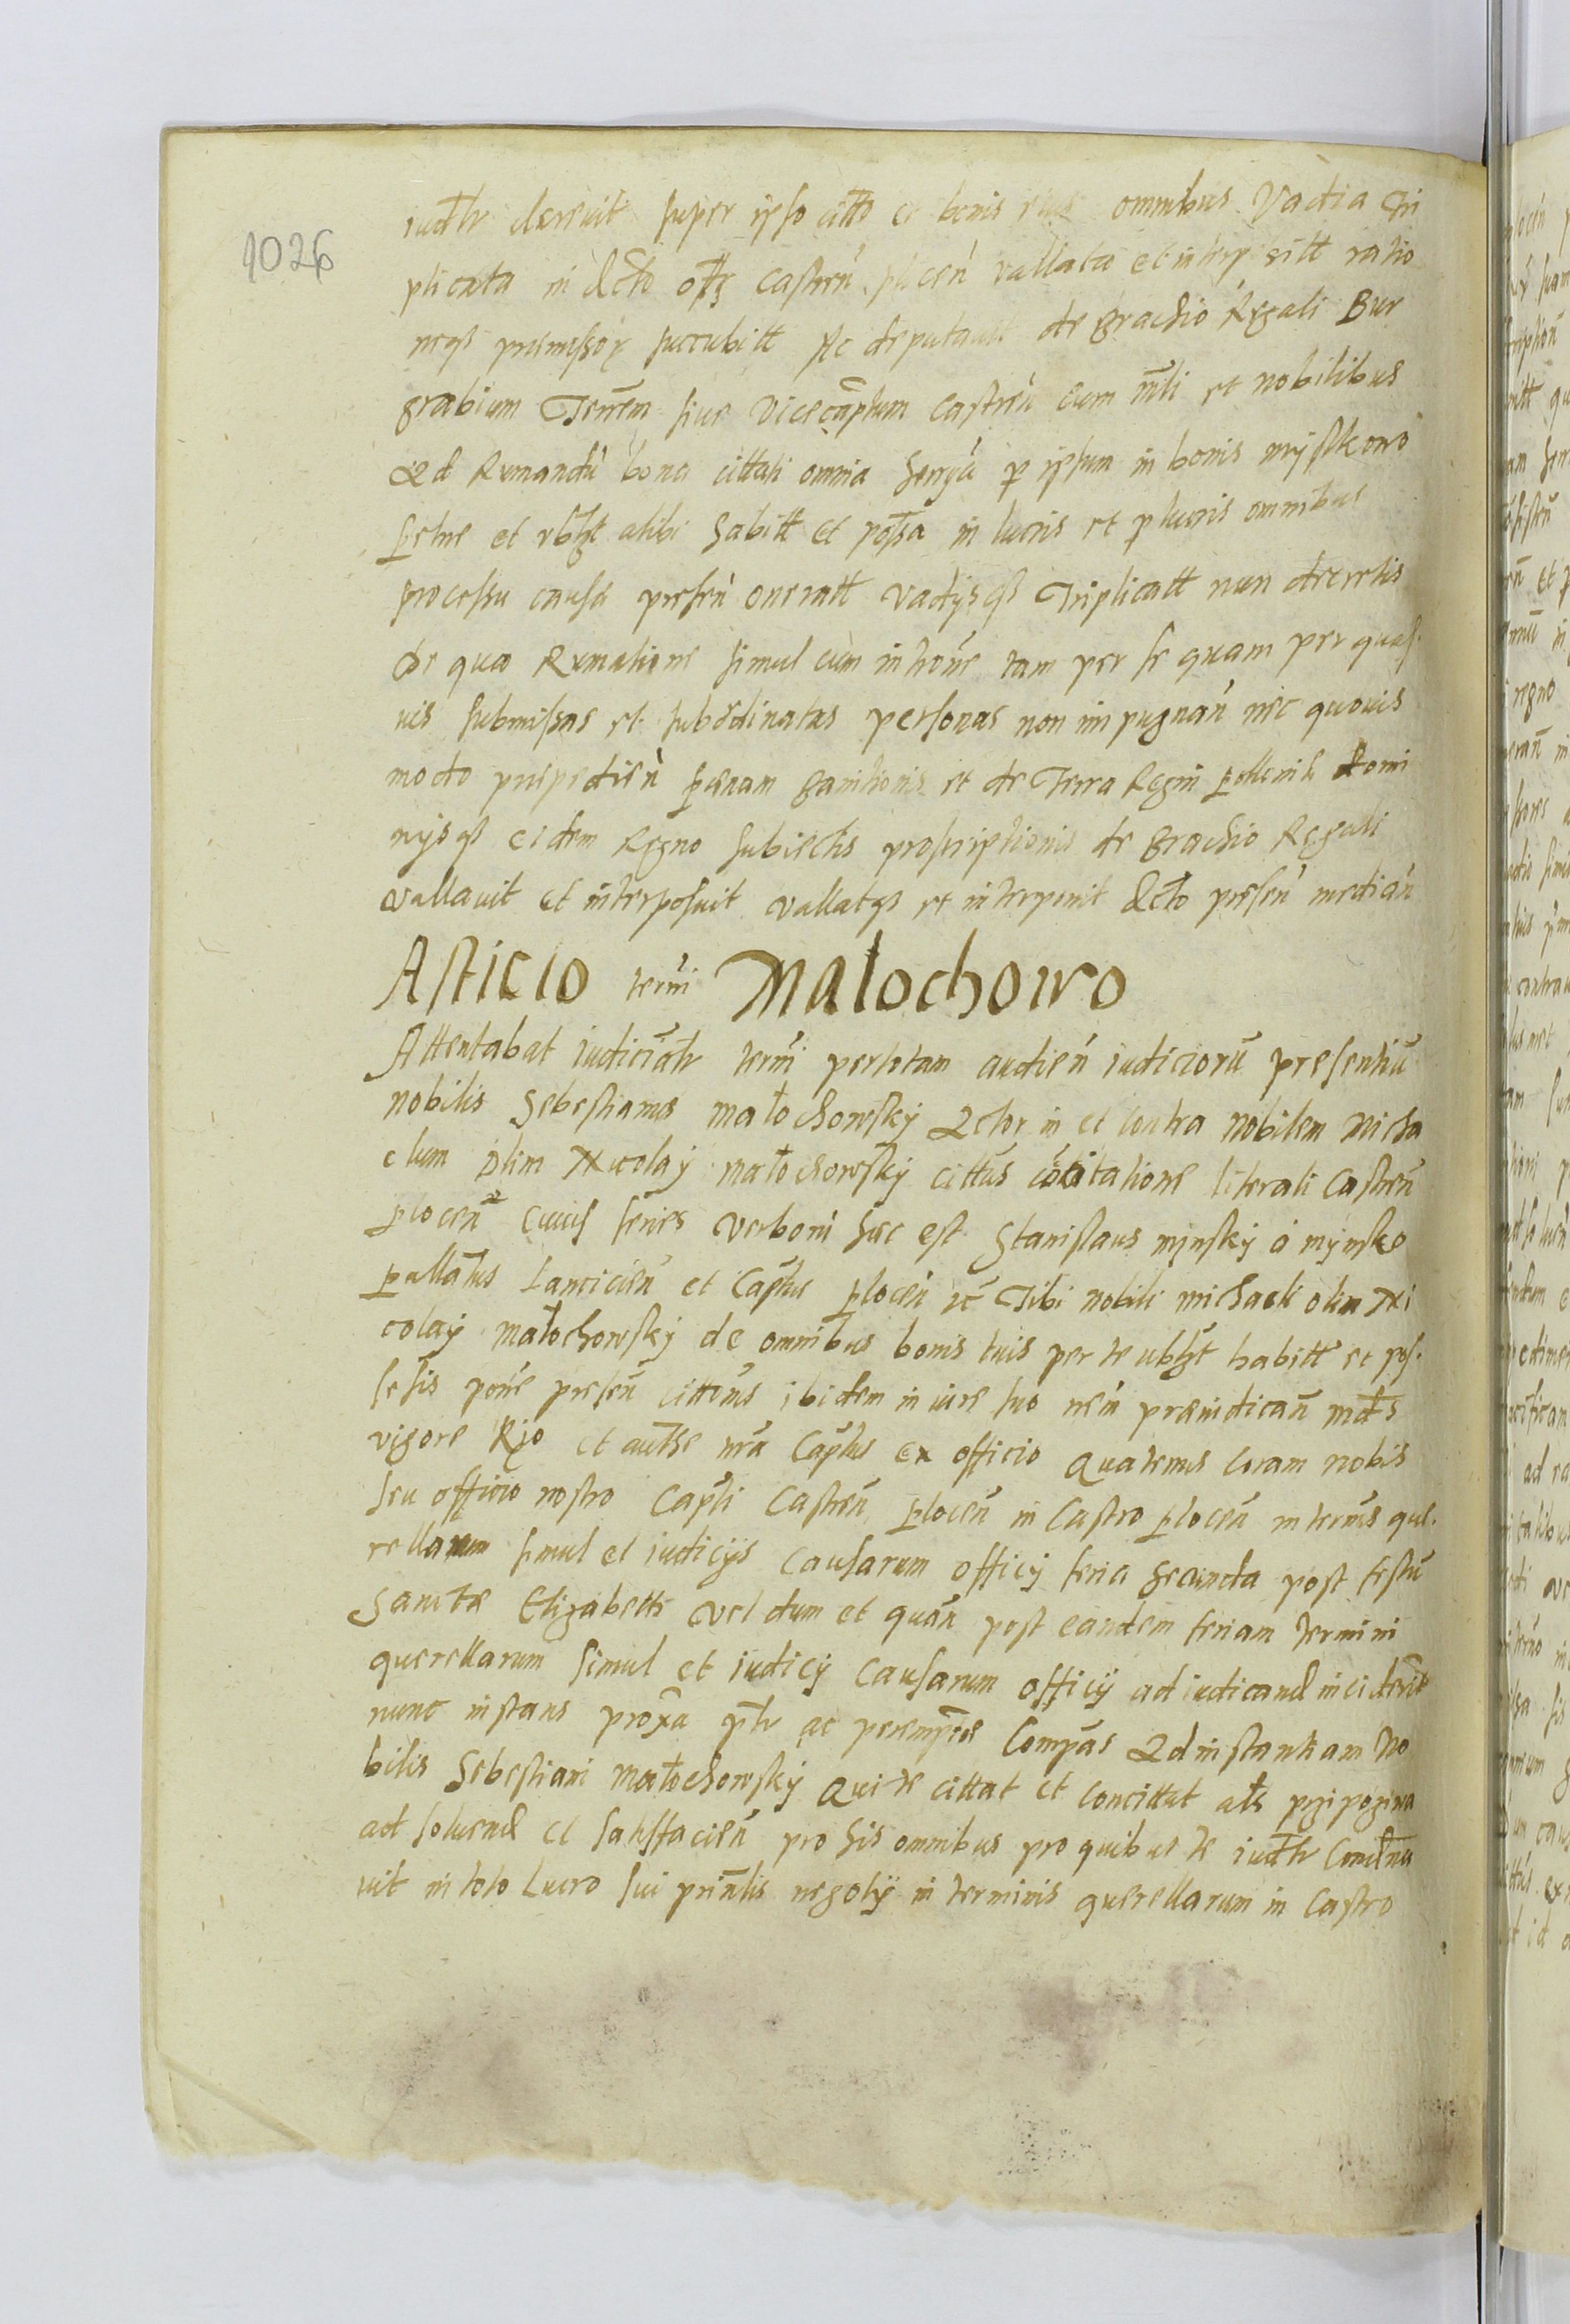 1026
iudtr decrevit super ipso citto et bonis eius omnibus Vadia Tri
plicata in dcto offs Castren plocen vallata et interpositt ratio
neqs premissor succubitt Ac deputavit de Brachio Regali Bur
grabium Terrem siue Vicecaptum Castren cum mli et nobilibus
Ad Rumandu bona cittati omnia hereda p ipsum in bonis myslkowo
petrae et vbqt alibi habitt et possa in lucris et p lucris omnibus
processu causa presen oneratt vadysqs Triplicatt nun decretis
De qua Rumatione simul cum introne tam per se quam per quas
uis submissas et subordinatas personas non impugnan nec quouis
modo prepedien penam banitionis et de Terra Regni pollonie domi
nysqs eidem Regno subiectis proscriptionis de Brachio Regali
vallauit et interposuit vallatqs et interponit dcto presen median
Asticio termi Małochowo
Attentabat iudiciatr termi per totam audien iudicioru presentiu
nobilis Sebestianus małochowsky Actor in et contra nobilem Micha
elum olim Nicolay małochowsky cittus cocitatione literali Castren
plocen cuius series verboru hec est Stanislaus mynsky a mynsko
pallatus Lancicien et Captus plocen etc Tibi nobili michaeli olim Ni
colay małochowsky de omnibus bonis tuis per te ubqt habitt et pos
sesis pone presen cittonis ibidem in iure suo nem preiudican mdts
vigore Rgo et autte nra Captus ex officio Quatenus coram nobis
seu officio nostro Capti Castren plocen in Castro plocen in termis que
rellarum simul et iudicys causarum officy feria secunda post festu
Sanctae Elizabeth vel dum et quan post eandem feriam termini
querellarum simul et iudicy causarum officy ad iudicand inciderit
nunc instans proxa ptr ac peremptrie Compas Ad instantiam No
bilis Sebestiani małochowsky Qui te cittat et concittat als przipozywa
ad soluend et satisfacien pro his omnibus pro quibus te iudtr Condna
uit in toto Lucro sui prinalis negoty in terminis querellarum in Castro